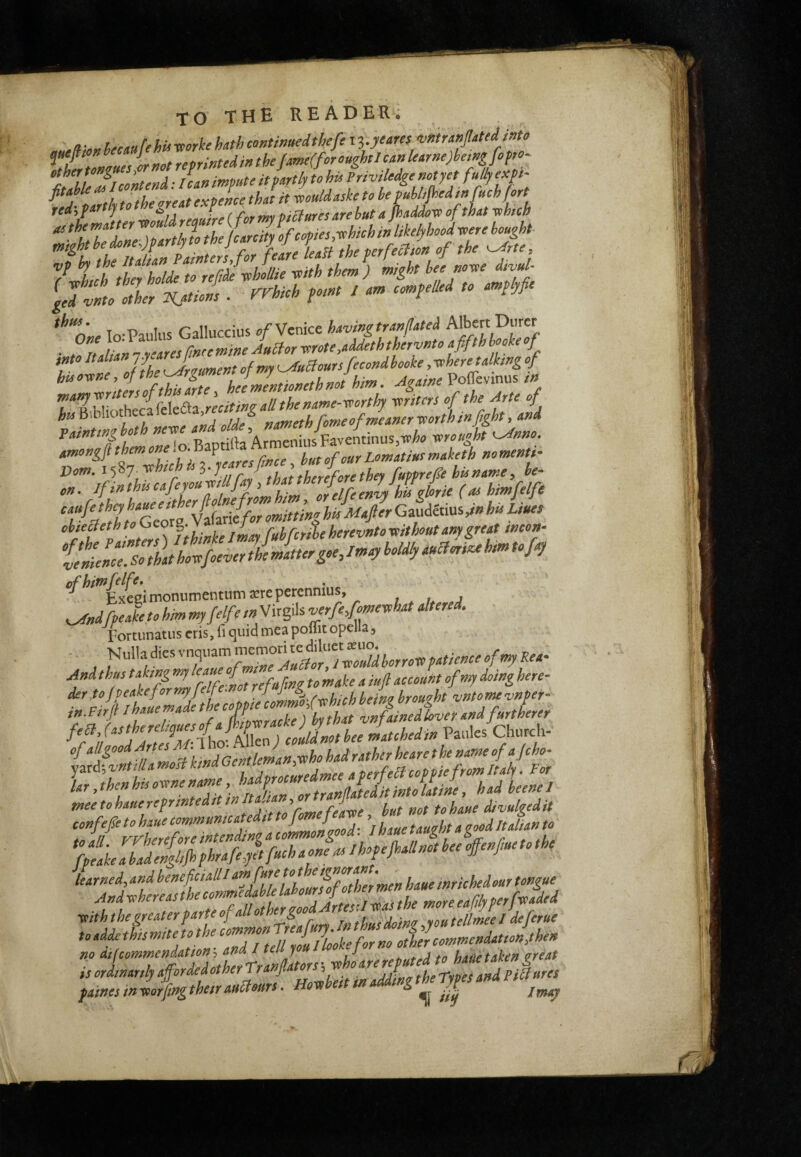 TO THE READER.
question because his worke hath continued these 13. yeares vntranslated into
other tongues, or not reprinted in the same (for ought I can learne) being so pro-
fitable as I contend: I can impute it partly to his Priviledge not yet fully expi-
red; partly to the great expence that it would aske to be published in such sort
as the matter would require (for my pictures are but a shaddow of that which
might be done;) partly to the scarcity of copies, which in likelyhood were bought
vp by the Italian Painters, for feare least the perfection of the Arte,
(which they holde to reside whollie with them) might bee nowe divul-
ged vnto other Nations. Which point I am compelled to amplyfie
thus.
One Io: Paulus Galluccius of Venice having translated Albert Durer
into Italian 7. yeares since mine Auctor wrote, addeth thervnto a fifth booke of
his owne, of the Argument of my Auctours second booke, where talking of
many writers of this arte, hee mentioneth not him. Againe Possevinus in
his Bibliotheca selecta, reciting all the name-worthy writers of the Arte of
Painting both newe and olde, nameth some of meaner worth in sight, and
amongst them one Io. Baptista Armenius Faventinus, who wrought Anno.
Dom. 1587. which is 3. yeares since, but of our Lomatius maketh no menti-
on. If in this case you will say, that therefore they suppresse his name, be-
cause they haue either stolne from him, or else envy his glorie (as himselfe
obiecteth to Georg. Vasarie for omitting his Master Gaudētius, in his Liues
of the Painters) I thinke I may subscribe herevnto without any great incon-
venience. So that howsoever the matter goe, I may boldly auctorize him to say
of himselfe.
Exegi monumentum ære perennius,
And speake to him my selfe in Virgils verse, somewhat altered.
Fortunatus eris, si quid mea possit opella,
Nulla dies vnquam memori te diluet æuo.
And thus taking my leaue of mine Auctor, I would borrow patience of my Rea-
der to speake for my selfe: not refusing to make a iust account of my doing here-
in. First I haue made the coppie commō, (which being brought vnto me vnper-
fect, (as the reliques of a shipwracke) by that vnfained lover and furtherer
of all good Artes M: Tho: Allen) could not bee matched in Paules Church-
yard; vntill a most kind Gentleman, who had rather heare the name of a scho-
lar, then his owne name, had procured mee a perfect coppie from Italy. For
mee to haue reprinted it in Italian, or translated it into latine, had beene I
confesse to haue communicated it to some feawe, but not to haue divulged it
to all. Wherefore intending a common good: I haue taught a good Italian to
speake a bad english phrase, yet such a one as I hope shall not bee offensiue to the
learned, and beneficiall I am sure to the ignorant.
And whereas the commēdable labours of other men haue inriched our tongue
with the greater parte of all other good Artes: I was the more easily perswaded
to adde this mite to the common Treasury. In thus doing, you tell mee I deserue
no discommendation; and I tell you I looke for no other commendation, then
is ordinarily afforded other Translators; who are reputed to haue taken great
paines in worsing their auctours. Howbeit in adding the Types and Pictures
¶ iiij I may